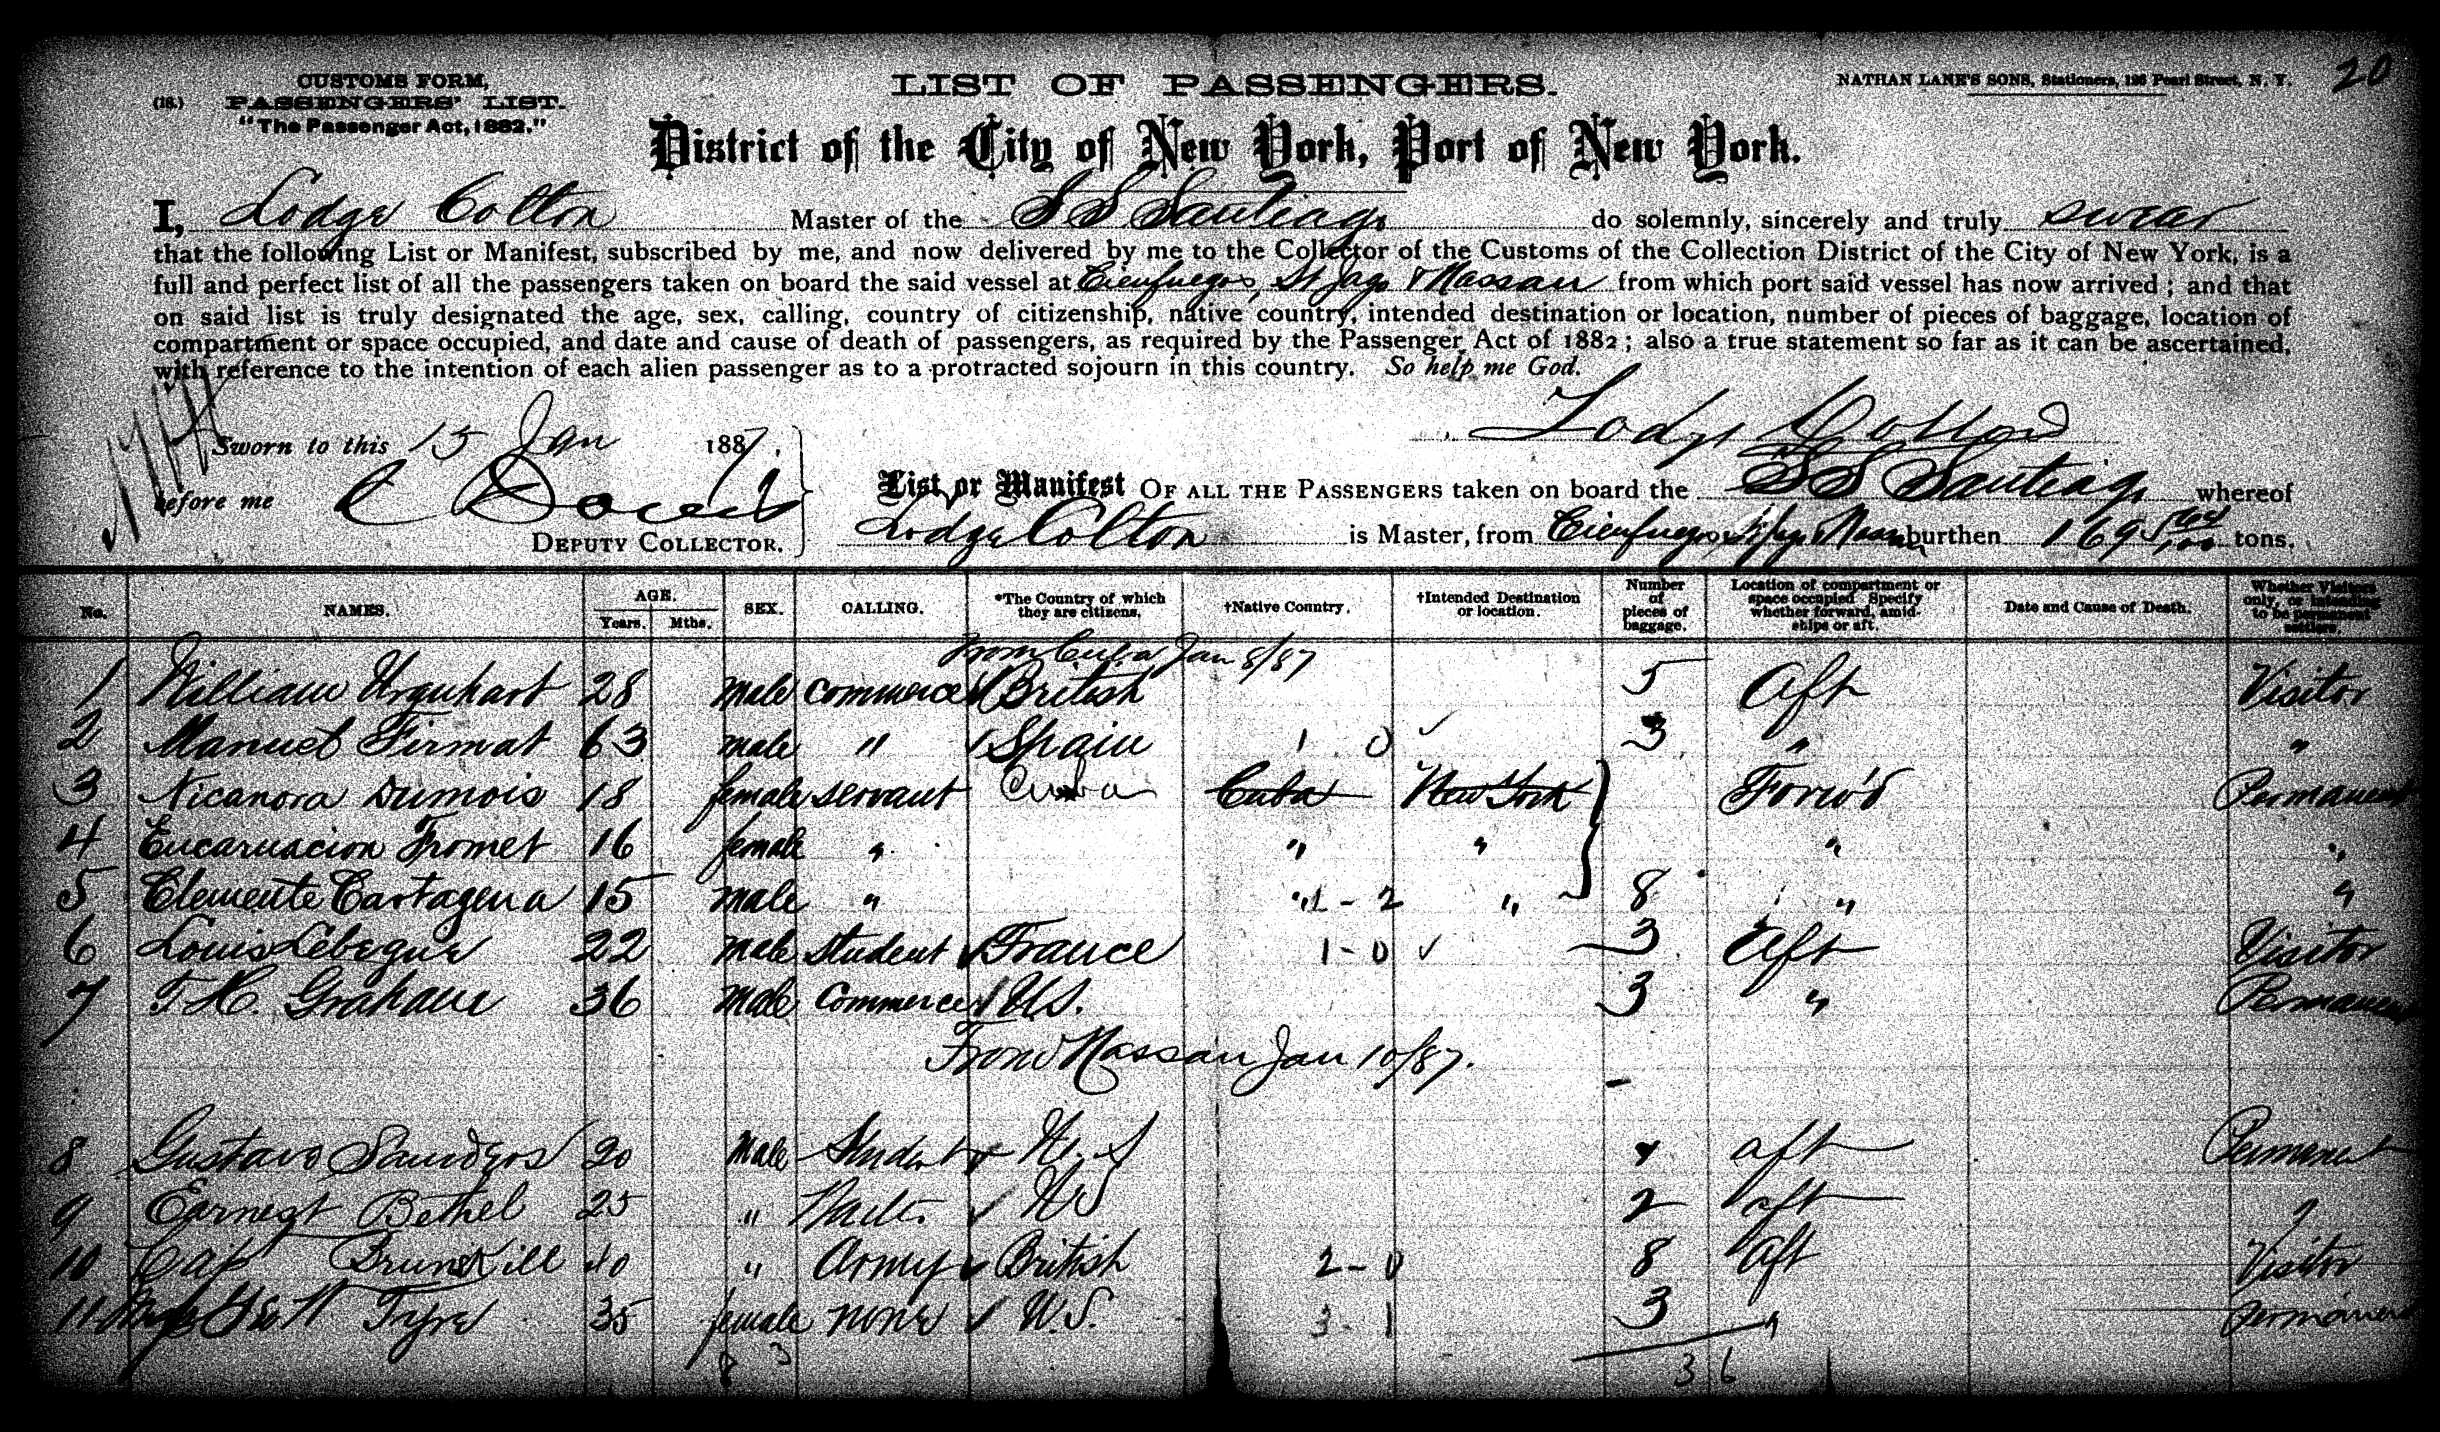 20
CUSTOMS FORM,
(18.) PASSENGERS' LIST.
"The Passenger Act, 1882."
LIST OF PASSENGERS.
NATHAN LANE'S SONS, Stationers, 196 Pearl Street, N. Y.
District of the City of New York, Port of New York.
I, Lodge Colton Master of the S S Santiago do solemnly, sincerely and truly swear
that the following List or Manifest, subscribed by me, and now delivered by me to the Collector of the Customs of the Collection District of the City of New York, is a
full and perfect list of all the passengers taken on board the said vessel at Cienfuegos, St Jago & Nassau from which port said vessel has now arrived; and that
on said list is truly designated the age, sex, calling, country of citizenship, native country, intended destination or location, number of pieces of baggage, location of
compartment or space occupied, and date and cause of death of passengers, as required by the Passenger Act of 1882; also a true statement so far as it can be ascertained,
with reference to the intention of each alien passenger as to a protracted sojourn in this country. So help me God.
Lodge Colton
Sworn to this 15 Jan 1887.
before me
DEPUTY COLLECTOR.
List or Manifest OF ALL THE PASSENGERS taken on board the S S Santiago whereof
Lodge Colton is Master, from Cienfuegos St Jago & Nassau burthen 1695 64/100 tons.
No. NAMES. AGE. Years. Mths. SEX. CALLING. *The Country of which they are citizens. †Native Country. †Intended Destination or location. Number of pieces of baggage. Location of compartment or space occupied Specify whether forward, amidships or aft. Date and Cause of Death. Whether Visitors only, or intending to be permanent settlers.
From Cuba Jan 8/87
1 William Urquhart 28 male commerce British 5 Aft Visitor
2 Manuel Firmat 63 male " Spain 1 0 3 " "
3 Nicanora Dumois 18 female servant Cuba Cuba New York Forw'd Permanent
4 Encarnacion Fromet 16 female " " " " "
5 Clemente Cartagena 15 male " " 1 - 2 " 8 " "
6 Louis Lebegue 22 male student France 1 - 0 3 Aft Visitor
7 T H. Graham 36 male Commerce U S. 3 " Permanent
From Nassau Jan 10/87.
8 Gustavo Saunders 20 Male Student U. S aft Permanent
9 Earnest Bethel 25 " U S 2 aft "
10 Cap Brunskill 40 " Army British 2 - 0 8 aft Visitor
11 Tyre 35 female none U.S. 3 - 1 3 " permanent
8 3
36